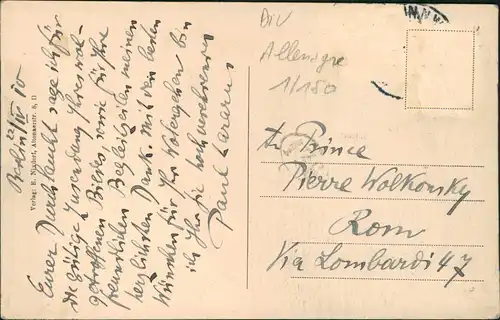 Berlin 22/IV 10
Eurer Durchlaucht sage ich für
die gütige Zusendung Ihres wol-
getroffenen Bildes, sowie für Ihre
freundlichen Begleitzeilen meinen
herzlichsten Dank. Mit den besten
Wünschen für Ihr Wolergehen bin
ich Ihr Sie hochverehrender
Paul
Verlag: R.
DIV
Allemagne
1/150
An Prince
Pierre Wolkonsky
Rom
Via Lombardi 47